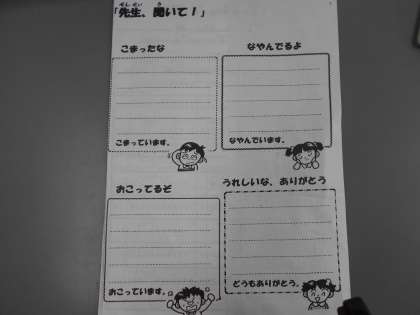 「先生、聞いて！」
こまったな
なやんでるよ
こまっています。
なやんでいます。
おこってるぞ
うれしいな、ありがとう
おこっています。
どうもありがとう。